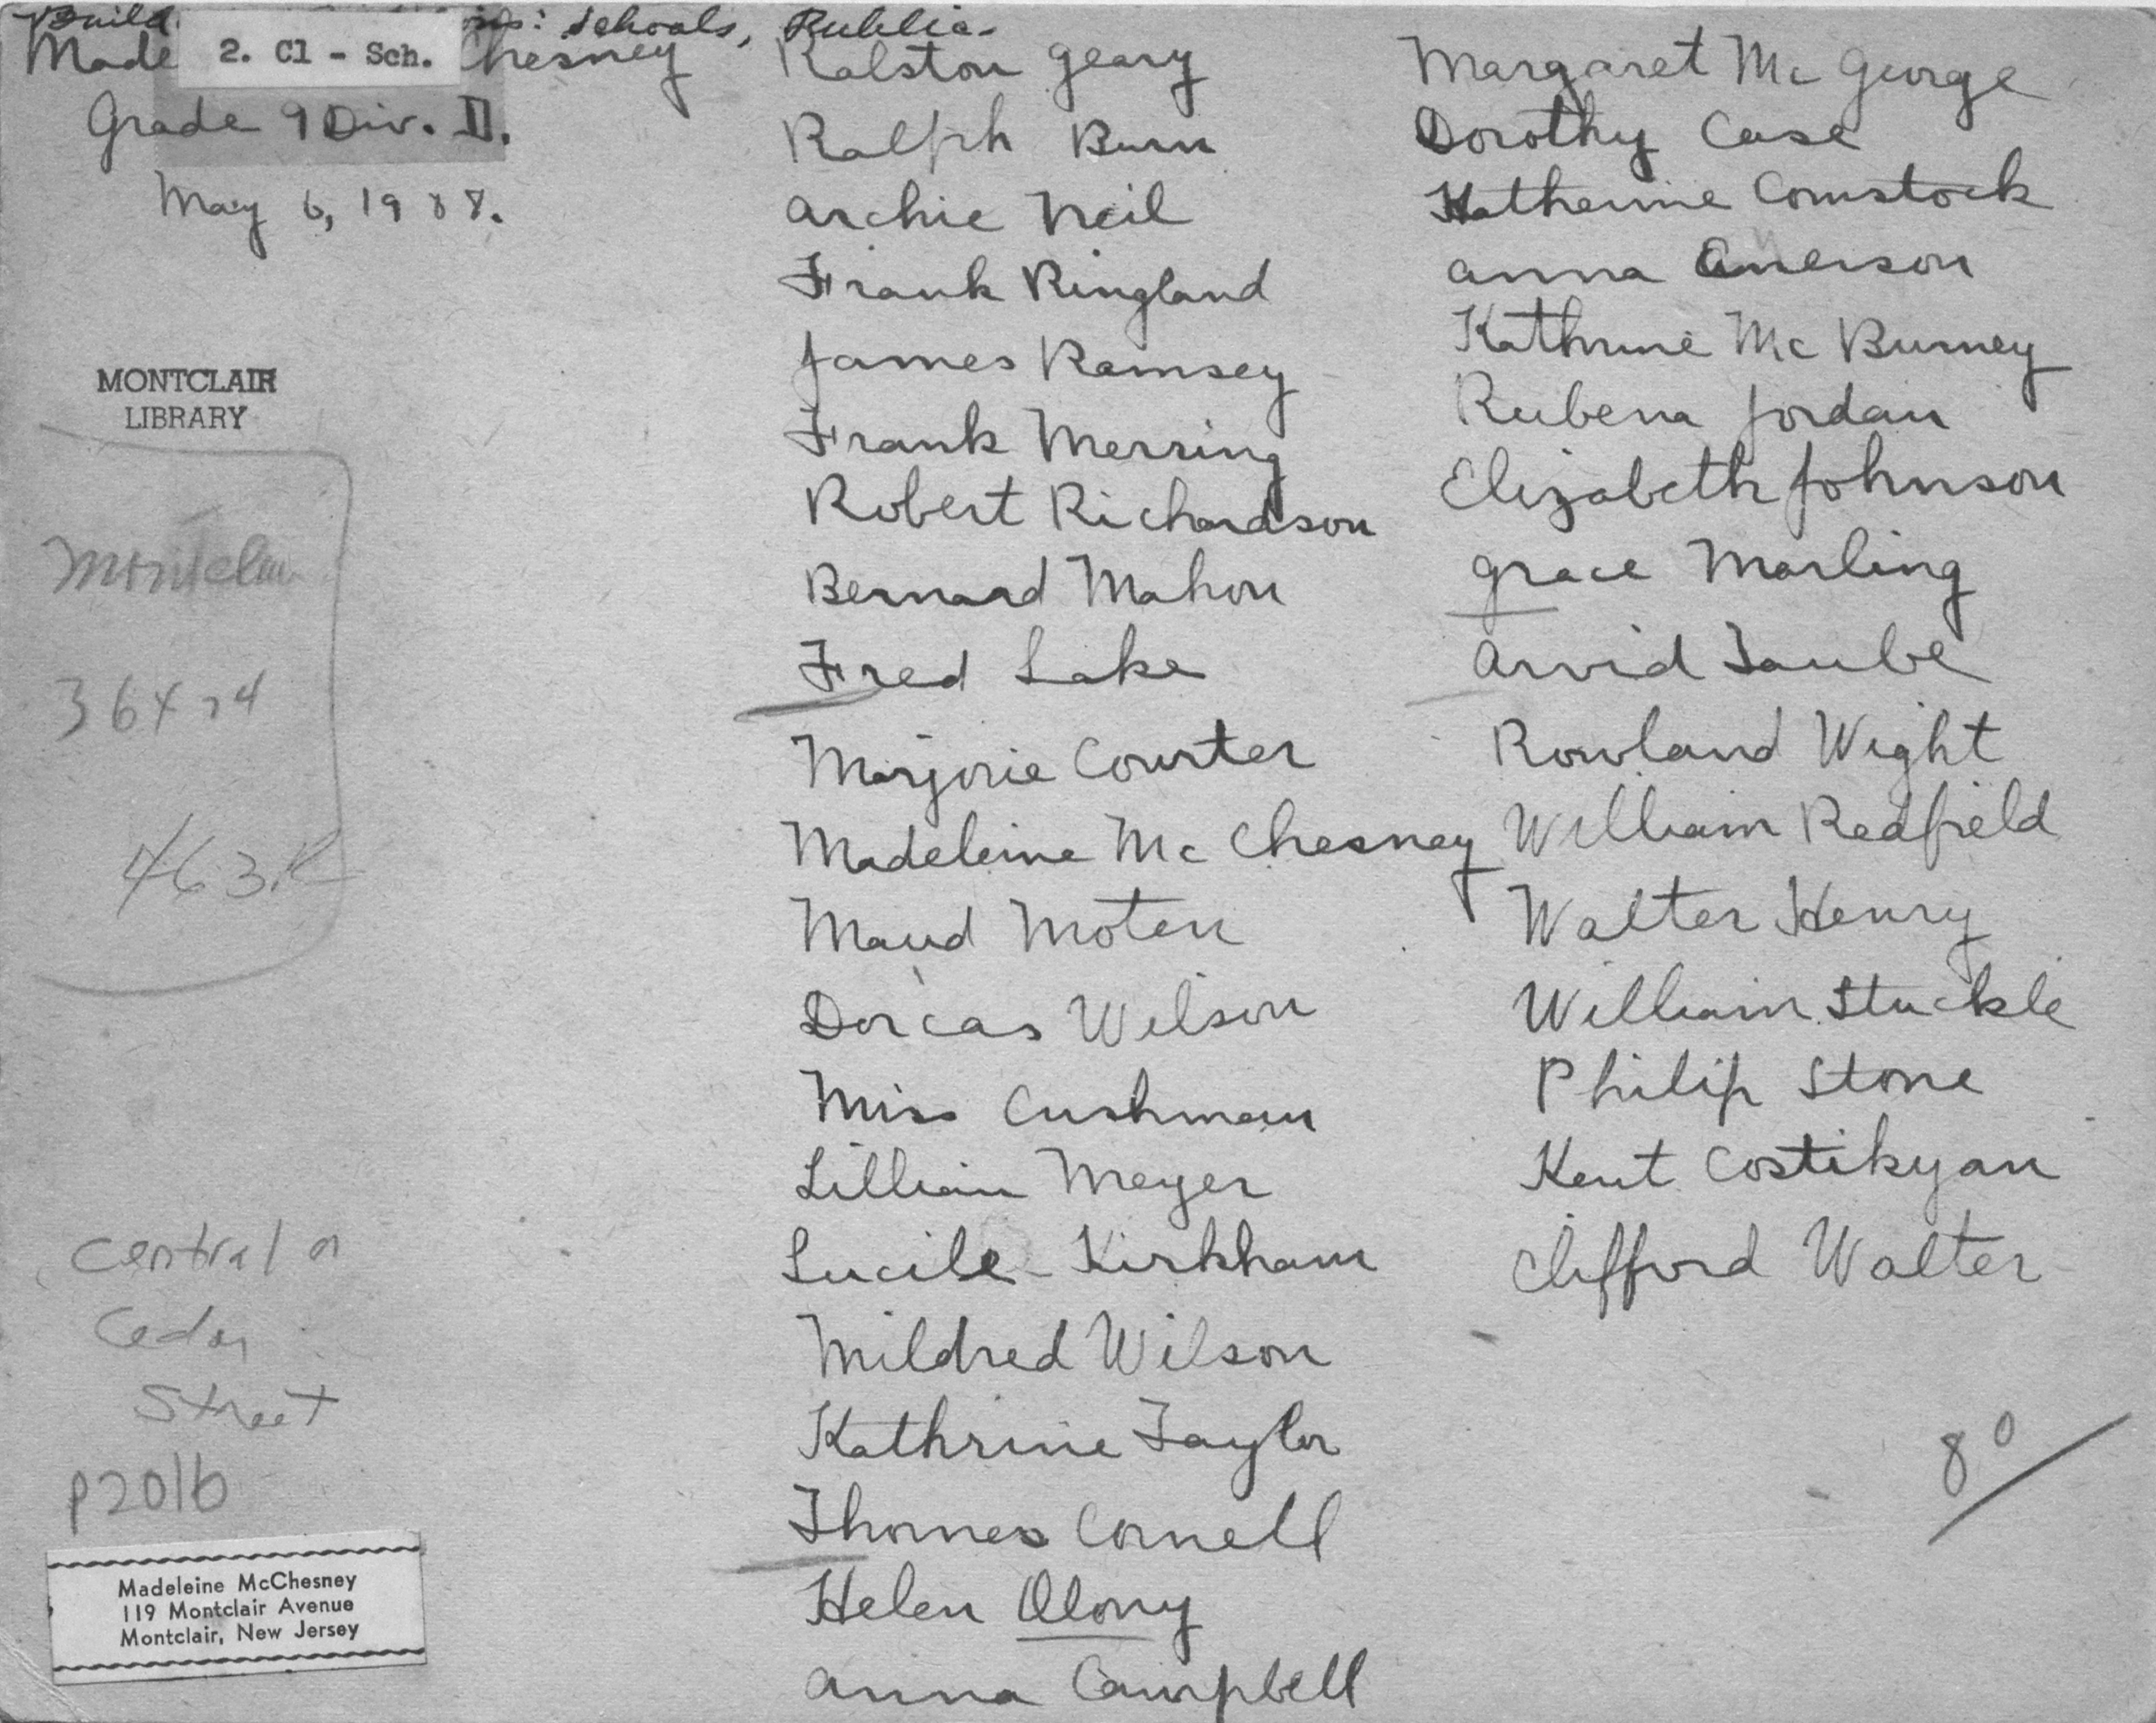 Build : Schools, Public
Made Chesney
2. Cl - Sch.
Grade 9 Div. II.
May 6, 1908.
MONTCLAIR
LIBRARY
Montclair
36 x 24
463R
Central on
Cedar
Street
P2016
Madeleine McChesney
119 Montclair Avenue
Montclair, New Jersey
Ralston Geary
Ralph Bunn
Archie Neil
Frank Ringland
James Ramsey
Frank Merring
Robert Richardson
Bernard Mahon
Fred Lake
Marjorie Courter
Madeleine Mc Chesney
Maud Moten
Dorcas Wilson
Miss Cushman
Lillian Meyer
Lucile Kirkham
Mildred Wilson
Kathrine Taylor
Thomas Cornell
Helen Olony
Anna Campbell
Margaret Mc George
Dorothy Case
Katherine Comstock
Anna Anerson
Kathrine Mc Burney
Rubena Jordan
Elizabeth Johnson
Grace Marling
Arvid Taube
Rowland Wight
William Redfield
Walter Henry
William Stuckle
Philip Stone
Kent Costikyan
Clifford Walter
80